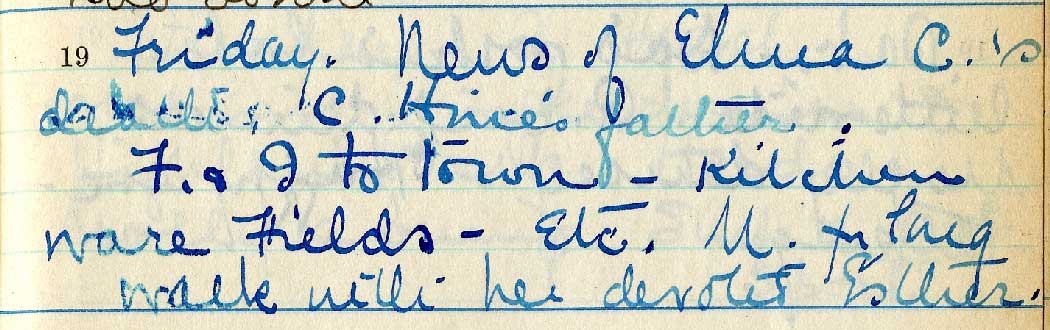 19 Friday. News of Elma C.'s
death, C. Hine's father.
F. & I to Town - Kitchen
ware Fields - Etc. M. for long
walk with her devoted Esther.